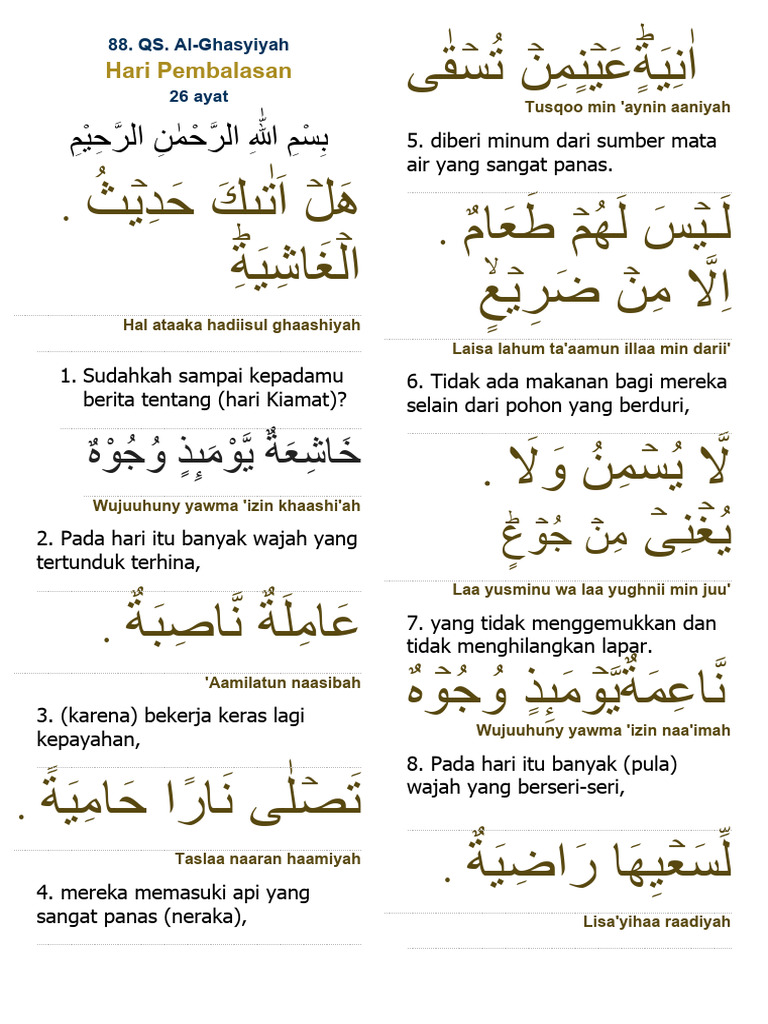 88. QS. Al-Ghasyiyah
Hari Pembalasan
26 ayat
بِسْمِ اللّٰهِ الرَّحْمٰنِ الرَّحِيْمِ
هَلْ اَتٰٮكَ حَدِيْثُ .
الْغَاشِيَةِؕ
Hal ataaka hadiisul ghaashiyah
1. Sudahkah sampai kepadamu
berita tentang (hari Kiamat)?
خَاشِعَةٌ يَّوْمَٮِٕذٍ وُجُوْهٌ
Wujuuhuny yawma 'izin khaashi'ah
2. Pada hari itu banyak wajah yang
tertunduk terhina,
عَامِلَةٌ نَّاصِبَةٌ .
'Aamilatun naasibah
3. (karena) bekerja keras lagi
kepayahan,
تَصْلٰى نَارًا حَامِيَةً .
Taslaa naaran haamiyah
4. mereka memasuki api yang
sangat panas (neraka),
اٰنِيَةٍؕعَيْنٍمِنْ تُسْقٰى
Tusqoo min 'aynin aaniyah
5. diberi minum dari sumber mata
air yang sangat panas.
لَـيْسَ لَهُمْ طَعَامٌ .
اِلَّا مِنْ ضَرِيْعٍۙ
Laisa lahum ta'aamun illaa min darii'
6. Tidak ada makanan bagi mereka
selain dari pohon yang berduri,
لَّا يُسْمِنُ وَلَا .
يُغْنِىْ مِنْ جُوْعٍؕ
Laa yusminu wa laa yughnii min juu'
7. yang tidak menggemukkan dan
tidak menghilangkan lapar.
نَّاعِمَةٌيَّوْمَٮِٕذٍ وُجُوْهٌ
Wujuuhuny yawma 'izin naa'imah
8. Pada hari itu banyak (pula)
wajah yang berseri-seri,
لِّسَعْيِهَا رَاضِيَةٌ .
Lisa'yihaa raadiyah